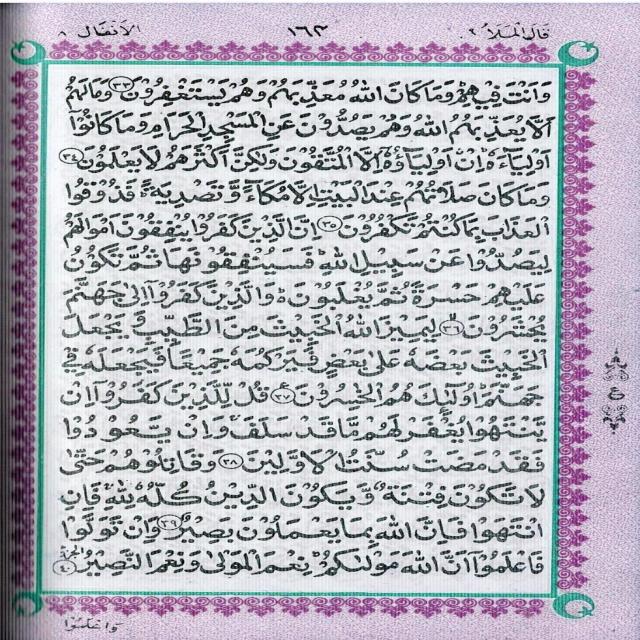 قال الملأ ٩ ١٦٣ الانفال ٨
وَاَنْتَ فِيْهِمْ وَمَا كَانَ اللهُ مُعَذِّبَهُمْ وَهُمْ يَسْتَغْفِرُوْنَ ﴿٣٣﴾ وَمَا لَهُمْ
اَلَّا يُعَذِّبَهُمُ اللهُ وَهُمْ يَصُدُّوْنَ عَنِ الْمَسْجِدِ الْحَرَامِ وَمَا كَانُوْٓا
اَوْلِيَآءَهٗ اِنْ اَوْلِيَآؤُهٗٓ اِلَّا الْمُتَّقُوْنَ وَلٰكِنَّ اَكْثَرَهُمْ لَا يَعْلَمُوْنَ ﴿٣٤﴾
وَمَا كَانَ صَلَاتُهُمْ عِنْدَ الْبَيْتِ اِلَّا مُكَآءً وَّتَصْدِيَةً فَذُوْقُوا
الْعَذَابَ بِمَا كُنْتُمْ تَكْفُرُوْنَ ﴿٣٥﴾ اِنَّ الَّذِيْنَ كَفَرُوْا يُنْفِقُوْنَ اَمْوَالَهُمْ
لِيَصُدُّوْا عَنْ سَبِيْلِ اللهِ فَسَيُنْفِقُوْنَهَا ثُمَّ تَكُوْنُ
عَلَيْهِمْ حَسْرَةً ثُمَّ يُغْلَبُوْنَ وَالَّذِيْنَ كَفَرُوْٓا اِلٰى جَهَنَّمَ
يُحْشَرُوْنَ ﴿٣٦﴾ لِيَمِيْزَ اللهُ الْخَبِيْثَ مِنَ الطَّيِّبِ وَيَجْعَلَ
الْخَبِيْثَ بَعْضَهٗ عَلٰى بَعْضٍ فَيَرْكُمَهٗ جَمِيْعًا فَيَجْعَلَهٗ فِيْ
جَهَنَّمَ اُولٰٓئِكَ هُمُ الْخٰسِرُوْنَ ﴿٣٧﴾ قُلْ لِّلَّذِيْنَ كَفَرُوْٓا اِنْ
يَّنْتَهُوْا يُغْفَرْ لَهُمْ مَّا قَدْ سَلَفَ وَاِنْ يَّعُوْدُوْا
فَقَدْ مَضَتْ سُنَّتُ الْاَوَّلِيْنَ ﴿٣٨﴾ وَقَاتِلُوْهُمْ حَتّٰى
لَا تَكُوْنَ فِتْنَةٌ وَّيَكُوْنَ الدِّيْنُ كُلُّهٗ لِلهِ فَاِنِ
انْتَهَوْا فَاِنَّ اللهَ بِمَا يَعْمَلُوْنَ بَصِيْرٌ ﴿٣٩﴾ وَاِنْ تَوَلَّوْا
فَاعْلَمُوْٓا اَنَّ اللهَ مَوْلٰىكُمْ نِعْمَ الْمَوْلٰى وَنِعْمَ النَّصِيْرُ ﴿٤٠﴾ الجزء
ع
واعلموا